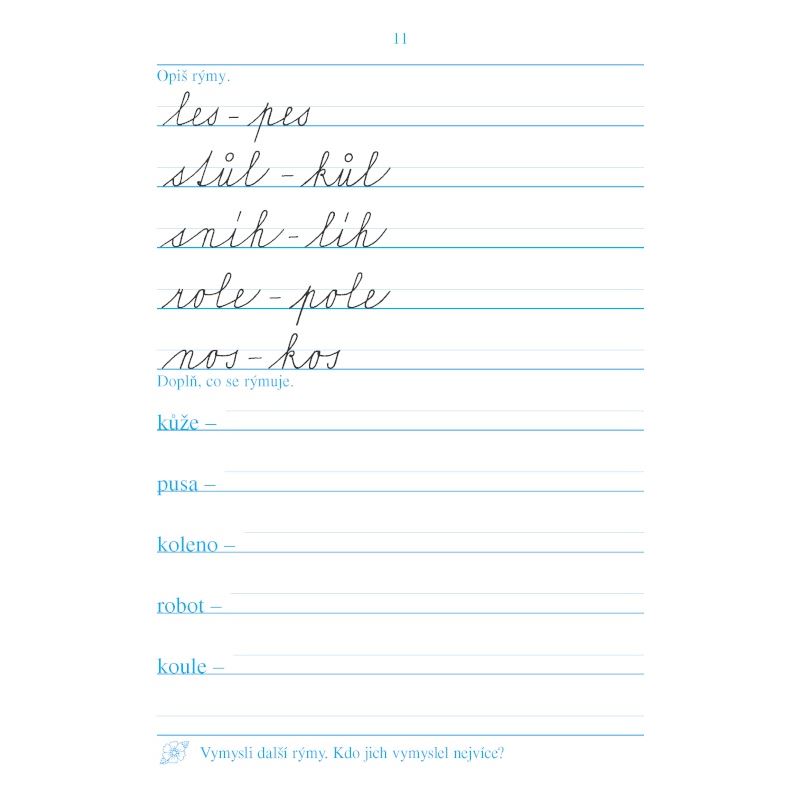 11
Opiš rýmy.
les - pes
stůl - kůl
sníh - líh
role - pole
nos - kos
Doplň, co se rýmuje.
kůže –
pusa –
koleno –
robot –
koule –
Vymysli další rýmy. Kdo jich vymyslel nejvíce?